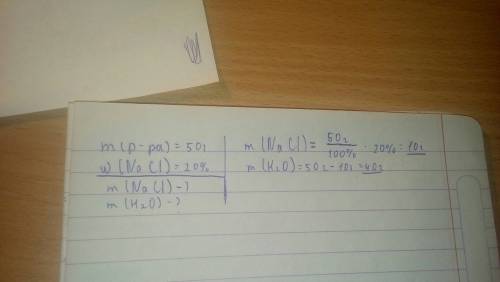 m(р-ра) = 50г
ω(NaCl) = 20%
m(NaCl) - ?
m(H₂O) - ?
m(NaCl) = 50г / 100% · 20% = 10г
m(H₂O) = 50г - 10г = 40г